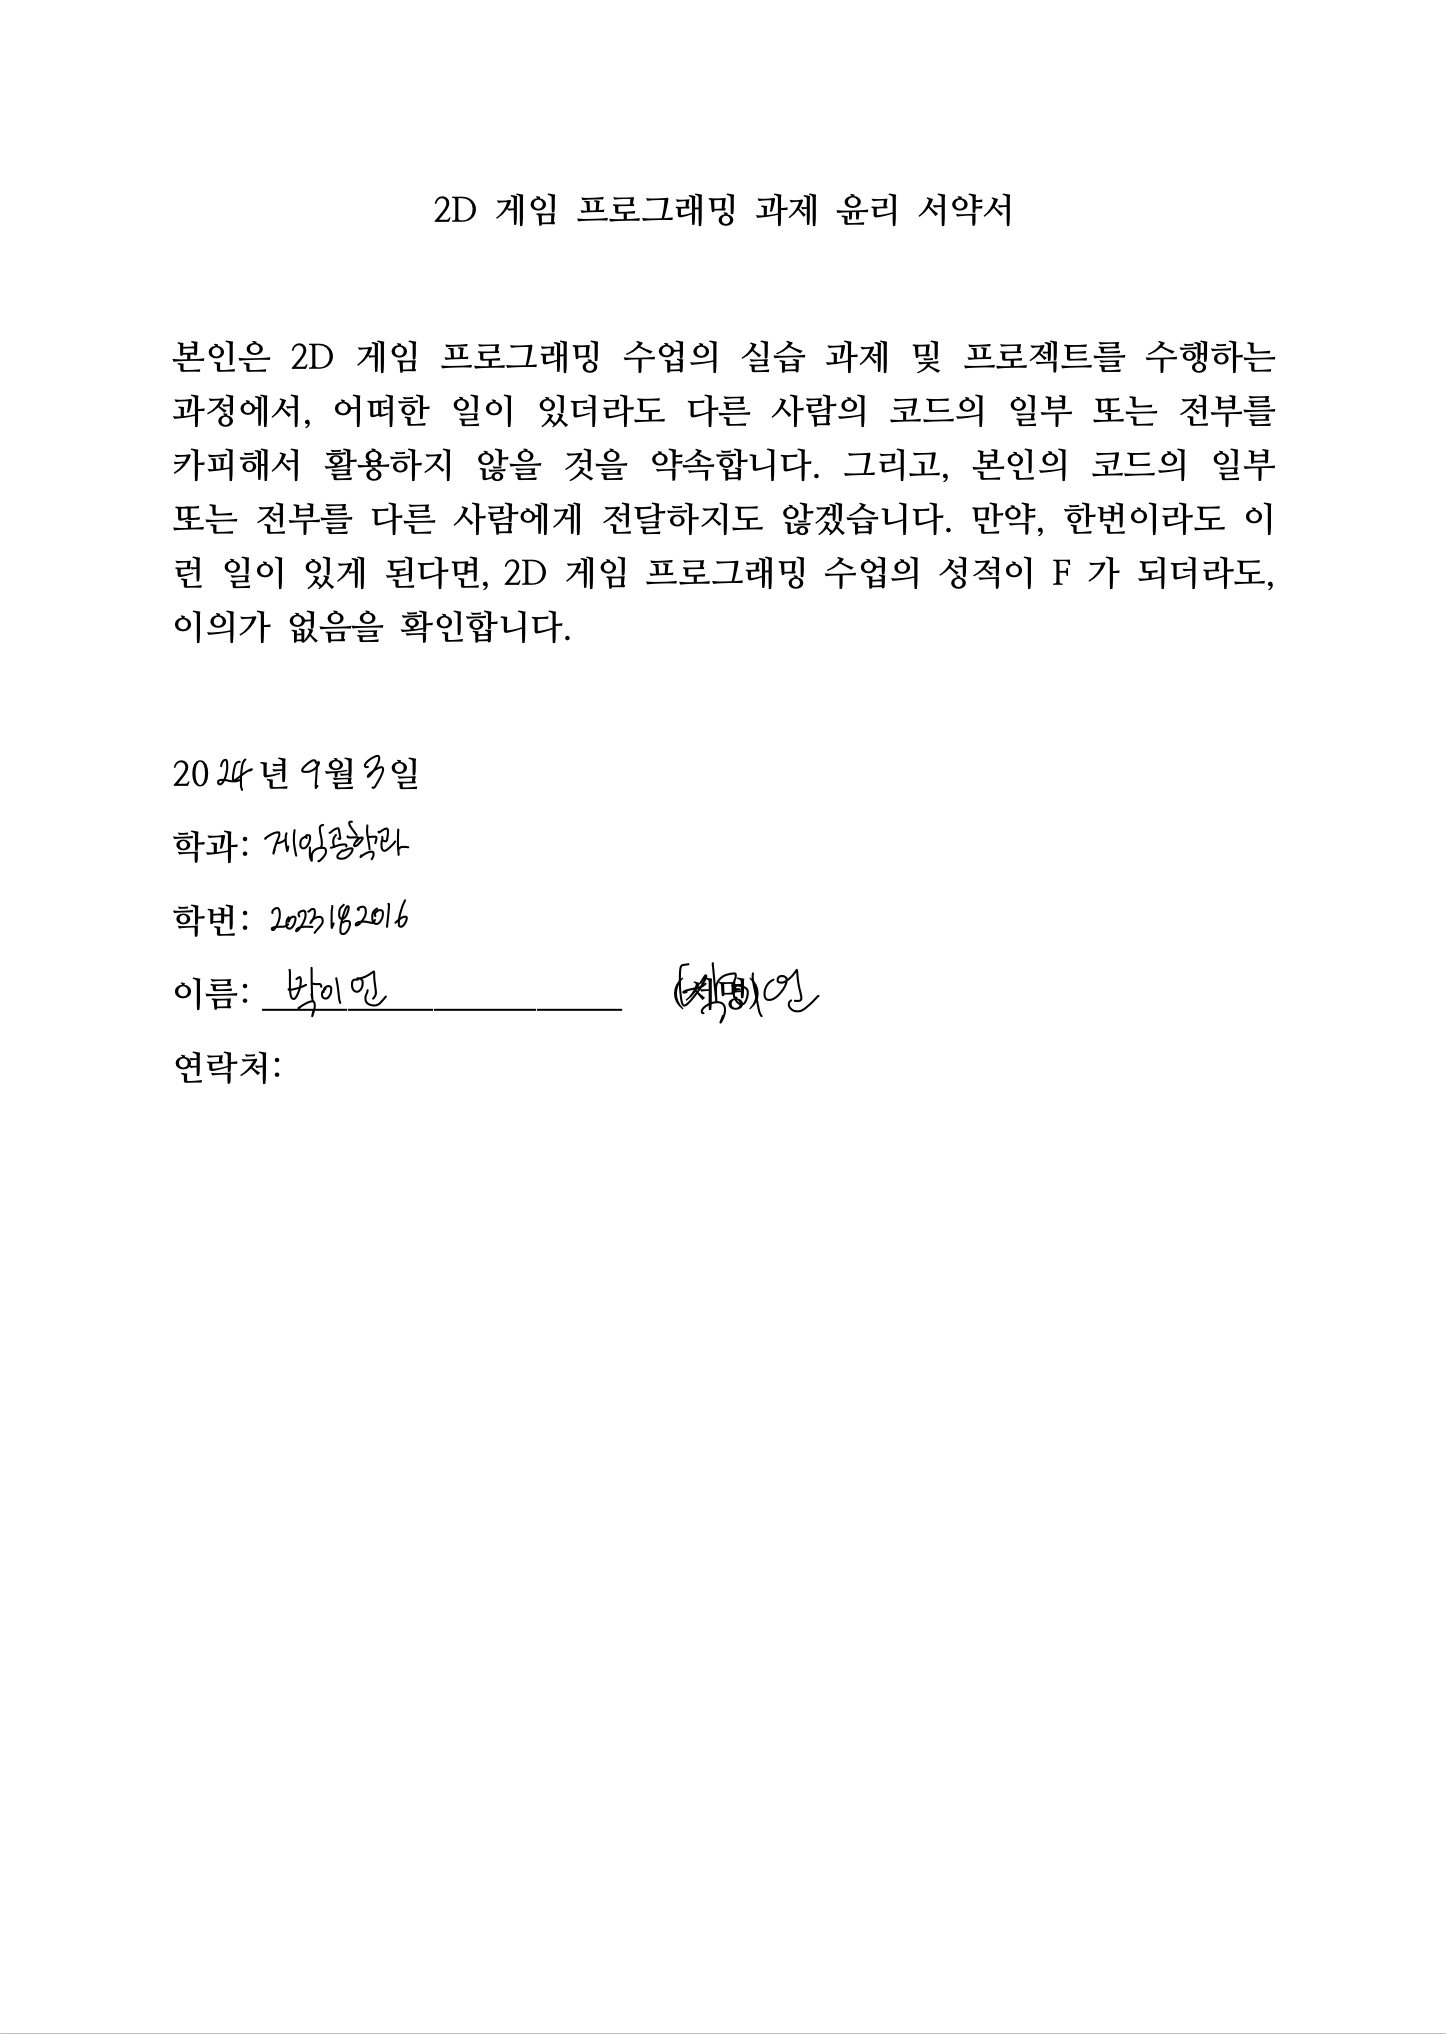 2D 게임 프로그래밍 과제 윤리 서약서
본인은 2D 게임 프로그래밍 수업의 실습 과제 및 프로젝트를 수행하는
과정에서, 어떠한 일이 있더라도 다른 사람의 코드의 일부 또는 전부를
카피해서 활용하지 않을 것을 약속합니다. 그리고, 본인의 코드의 일부
또는 전부를 다른 사람에게 전달하지도 않겠습니다. 만약, 한번이라도 이
런 일이 있게 된다면, 2D 게임 프로그래밍 수업의 성적이 F 가 되더라도,
이의가 없음을 확인합니다.
2024년 9월 3일
학과: 게임공학과
학번: 2023182016
이름: 박이언 (서명)
연락처: